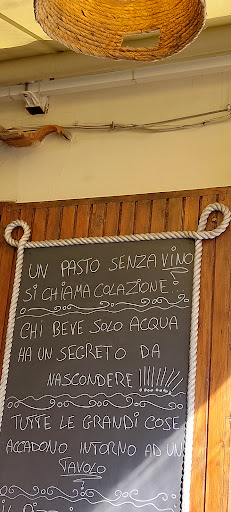 UN PASTO SENZA VINO
SI CHIAMA COLAZIONE!
CHI BEVE SOLO ACQUA
HA UN SEGRETO DA
NASCONDERE!!!!!!!
TUTTE LE GRANDI COSE
ACCADONO INTORNO AD UN
TAVOLO